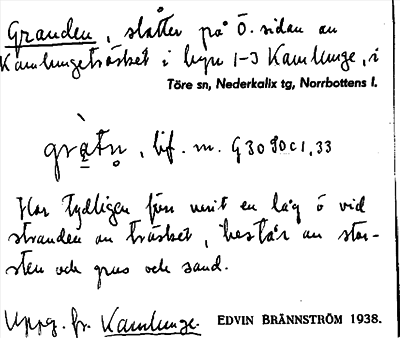 Granden, slåtter på Ö. sidan av
Kamlungeträsket i byn 1-3 Kamlunge, i
Töre sn, Nederkalix tg, Norrbottens l.
bif. m. G3090c1,33
Har tydligen förr varit en låg ö vid
stranden av träsket, består av stor-
sten och grus och sand.
Uppg. fr. Kamlunge. EDVIN BRÄNNSTRÖM 1938.